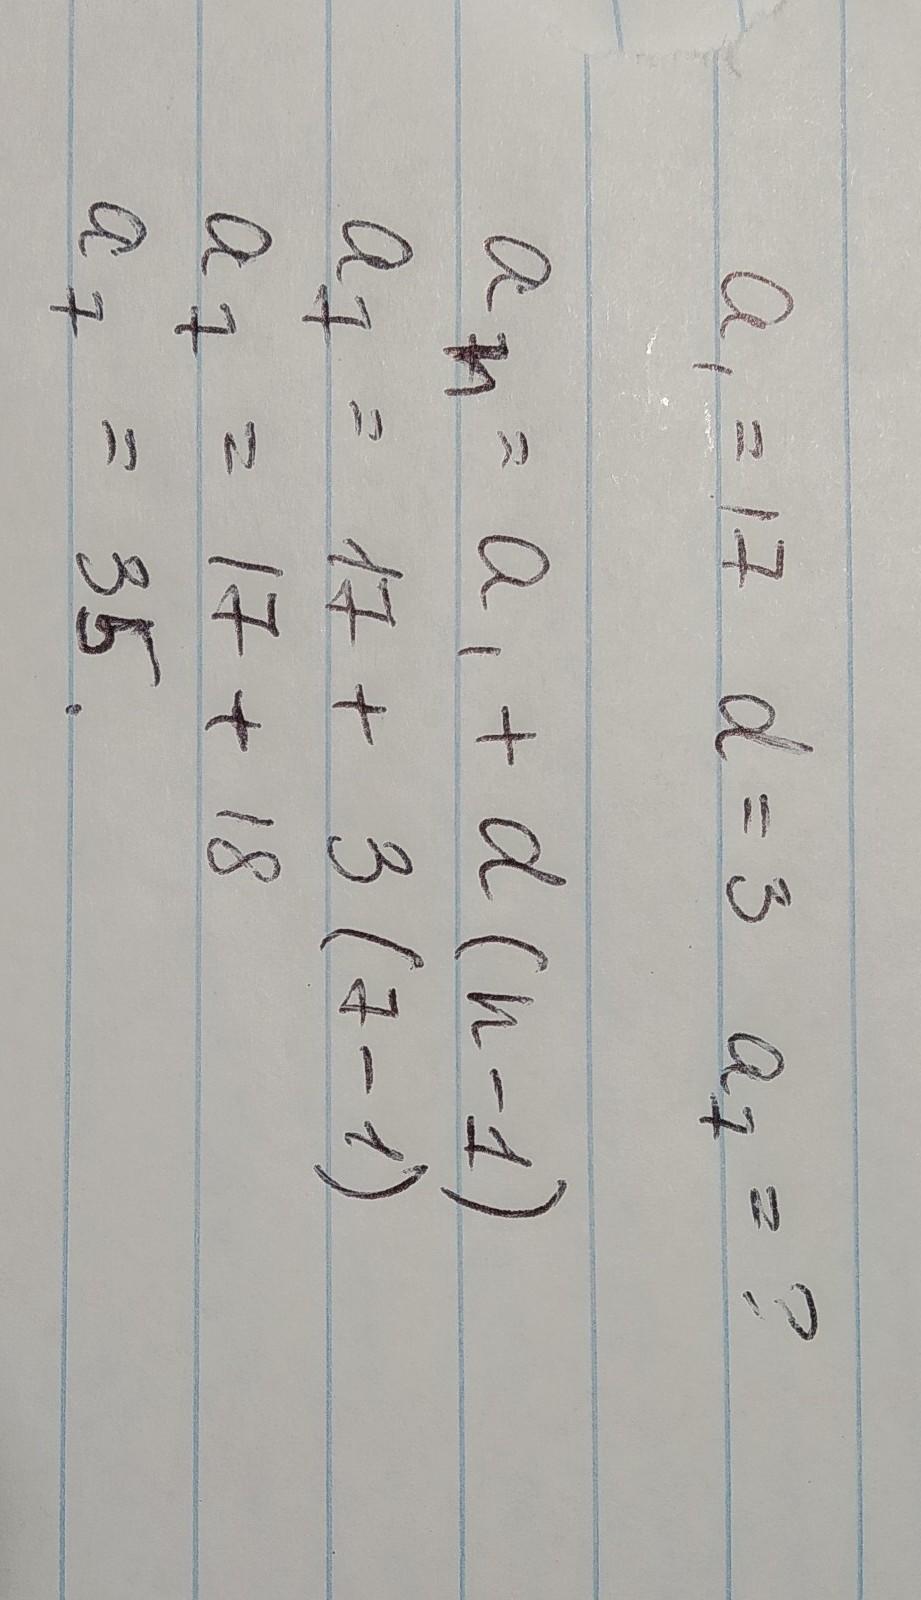 a₁ = 17 d = 3 a₇ = ?
aₙ = a₁ + d(n-1)
a₇ = 17 + 3(7-1)
a₇ = 17 + 18
a₇ = 35.